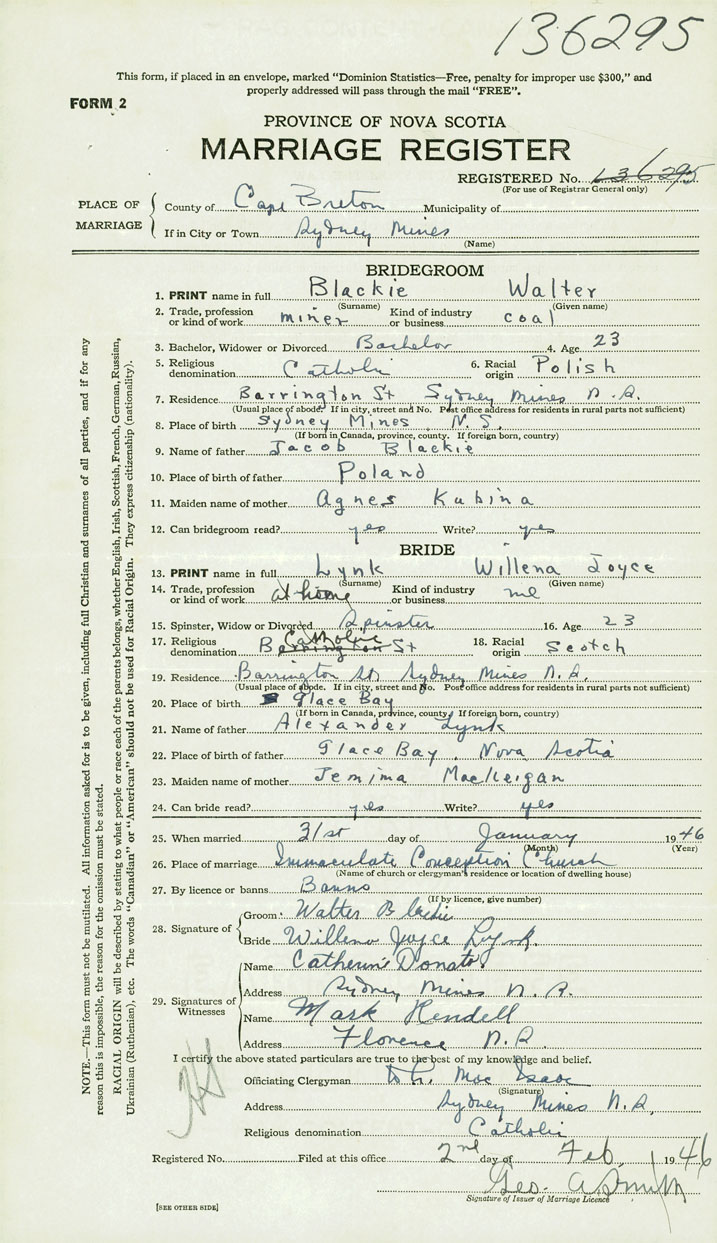 136295
This form, if placed in an envelope, marked "Dominion Statistics—Free, penalty for improper use $300," and
properly addressed will pass through the mail "FREE".
FORM 2
PROVINCE OF NOVA SCOTIA
MARRIAGE REGISTER
REGISTERED No. 136295
(For use of Registrar General only)
PLACE OF MARRIAGE
County of Cape Breton Municipality of
If in City or Town Sydney Mines
(Name)
BRIDEGROOM
1. PRINT name in full Blackie Walter
(Surname) (Given name)
2. Trade, profession or kind of work miner Kind of industry or business coal
3. Bachelor, Widower or Divorced Bachelor 4. Age 23
5. Religious denomination Catholic 6. Racial origin Polish
7. Residence Barrington St Sydney Mines N.S.
(Usual place of abode. If in city, street and No. Post office address for residents in rural parts not sufficient)
8. Place of birth Sydney Mines N.S.
(If born in Canada, province, county. If foreign born, country)
9. Name of father Jacob Blackie
10. Place of birth of father Poland
11. Maiden name of mother Agnes Kubina
12. Can bridegroom read? yes Write? yes
BRIDE
13. PRINT name in full Lynk Willena Joyce
(Surname) (Given name)
14. Trade, profession or kind of work at home Kind of industry or business
15. Spinster, Widow or Divorced Spinster 16. Age 23
17. Religious denomination Catholic Barrington St 18. Racial origin Scotch
19. Residence Barrington St Sydney Mines N.S.
(Usual place of abode. If in city, street and No. Post office address for residents in rural parts not sufficient)
20. Place of birth Glace Bay
(If born in Canada, province, county. If foreign born, country)
21. Name of father Alexander Lynk
22. Place of birth of father Glace Bay, Nova Scotia
23. Maiden name of mother Jemima MacKeigan
24. Can bride read? yes Write? yes
25. When married 31st day of January 1946
(Month) (Year)
26. Place of marriage Immaculate Conception Church
(Name of church or clergyman's residence or location of dwelling house)
27. By licence or banns Banns
(If by licence, give number)
28. Signature of
Groom Walter Blackie
Bride Willena Joyce Lynk
29. Signatures of Witnesses
Name Catherine Donato
Address Sydney Mines N.S.
Name Mark Rendell
Address Florence N.S.
I certify the above stated particulars are true to the best of my knowledge and belief.
Officiating Clergyman Mac Isaac
(Signature)
Address Sydney Mines N.S.
Religious denomination Catholic
Registered No. Filed at this office 2nd day of Feb. 1946
Geo. A Smith
Signature of Issuer of Marriage Licence
[SEE OTHER SIDE]
NOTE.—This form must not be mutilated. All information asked for is to be given, including full Christian and surnames of all parties, and if for any
reason this is impossible, the reason for the omission must be stated.
RACIAL ORIGIN will be described by stating to what people or race each of the parents belongs, whether English, Irish, Scottish, French, German, Russian,
Ukrainian (Ruthenian), etc. The words "Canadian" or "American" should not be used for Racial Origin. They express citizenship (nationality).